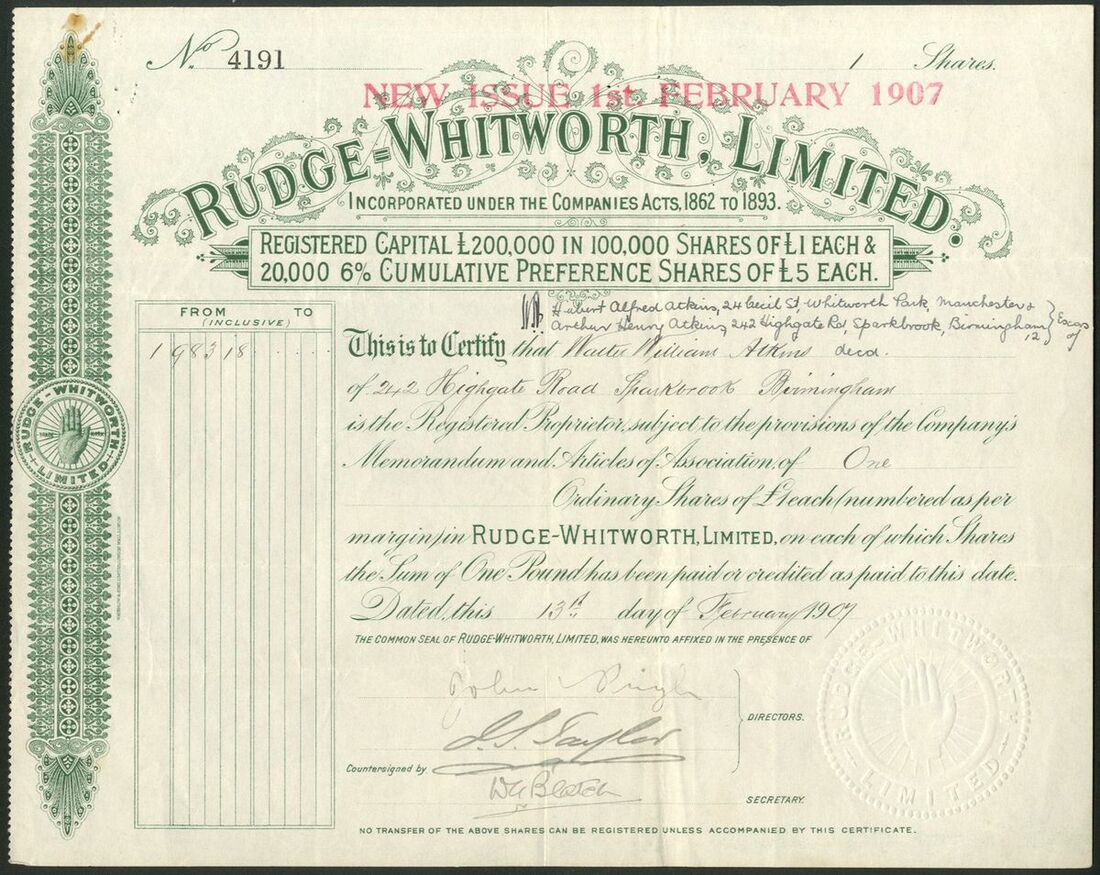 No 4191
1 Shares.
NEW ISSUE 1st. FEBRUARY 1907
RUDGE=WHITWORTH, LIMITED.
INCORPORATED UNDER THE COMPANIES ACTS, 1862 TO 1893.
REGISTERED CAPITAL £200,000 IN 100,000 SHARES OF £1 EACH &
20,000 6% CUMULATIVE PREFERENCE SHARES OF £5 EACH.
Hubert Alfred Atkins, 24 Cecil St, Whitworth Park, Manchester &
Arthur Henry Atkins, 242 Highgate Rd, Sparkbrook, Birmingham 12 } Excrs of
FROM TO
(INCLUSIVE)
198318
This is to Certify that Walter William Atkins decd.
of 242 Highgate Road Sparkbrook Birmingham
is the Registered Proprietor, subject to the provisions of the Company's
Memorandum and Articles of Association, of One
Ordinary Shares of £1 each (numbered as per
margin) in RUDGE-WHITWORTH, LIMITED, on each of which Shares
the Sum of One Pound has been paid or credited as paid to this date.
Dated, this 13th day of February 1907
THE COMMON SEAL OF RUDGE-WHITWORTH, LIMITED, WAS HEREUNTO AFFIXED IN THE PRESENCE OF
John Pugh
DIRECTORS.
Countersigned by
SECRETARY.
NO TRANSFER OF THE ABOVE SHARES CAN BE REGISTERED UNLESS ACCOMPANIED BY THIS CERTIFICATE.
RUDGE-WHITWORTH LIMITED
RUDGE-WHITWORTH LIMITED